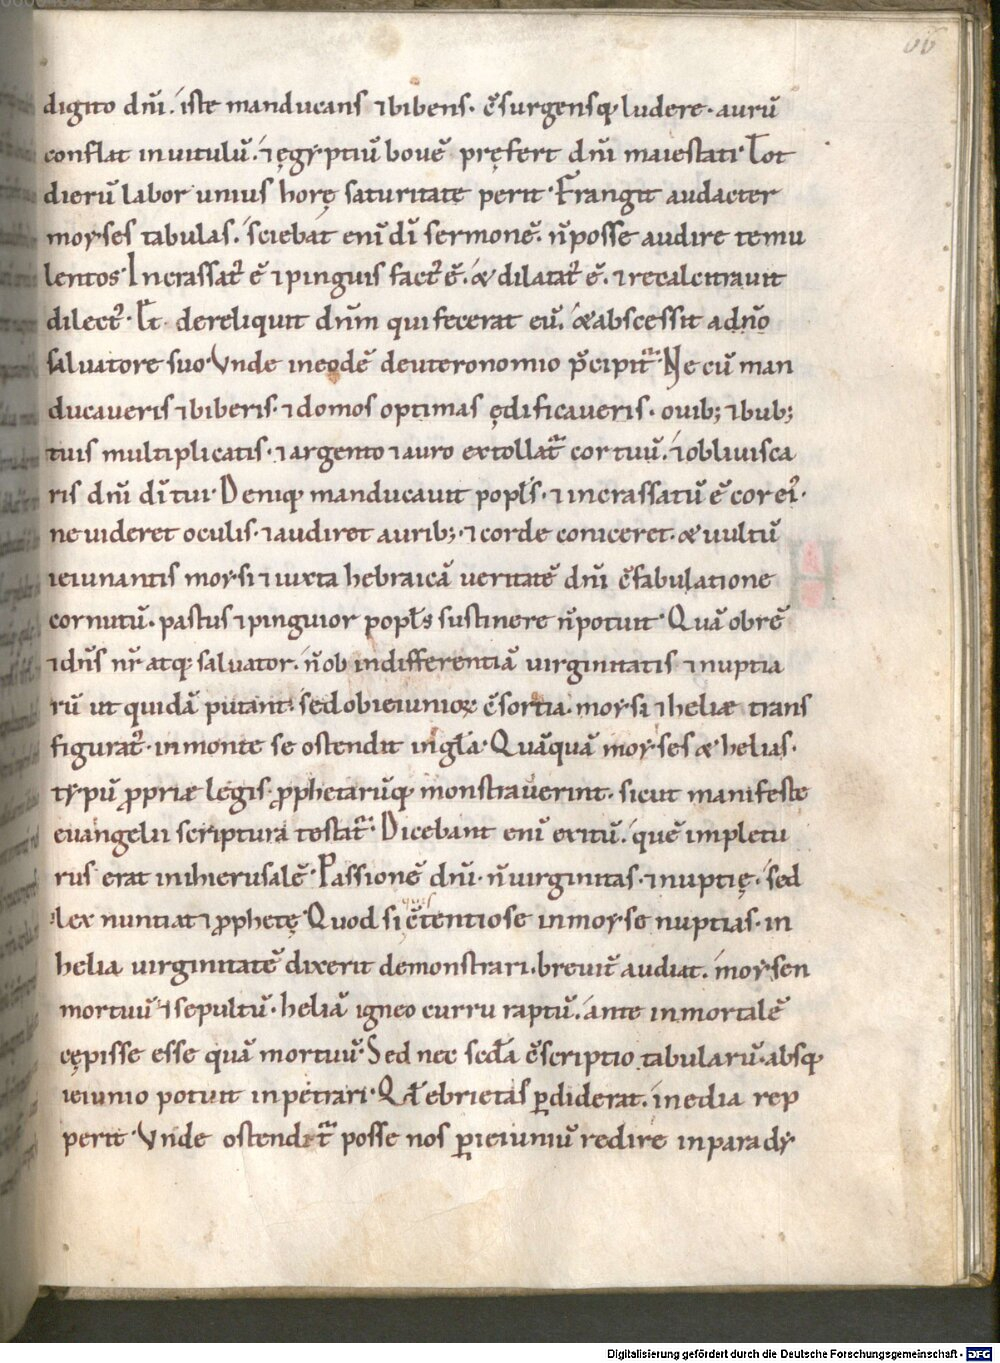 digito dñi. iste manducans ⁊ bibens. c̄surgensq; ludere. aurū
conflat in uitulū. ⁊ ęgyptiū bouē pręfert dñi maiestati. Tot
dierū labor unius horę saturitate perit. Frangit audacter
moyses tabulas. sciebat enī dī sermonē. ñ posse audire temu
lentos. Incrassat᷒ ē ⁊ pinguis fact᷒ ē. & dilatat᷒ ē. ⁊ recalcitrauit
dilect᷒. Et dereliquit dñm qui fecerat eū. & abscessit a dño
saluatore suo. Vnde in eodē deuteronomio p̄cipit᷑. Ne cū man
ducaueris ⁊ biberis. ⁊ domos optimas ędificaueris. ouib; ⁊ bub;
tuis multiplicatis. ⁊ argento ⁊ auro extollat᷑ cor tuū. ⁊ obliuisca
ris dñi dī tui. Deniq; manducauit popl̄s. ⁊ incrassatū ē cor ei᷒.
ne uideret oculis. ⁊ audiret aurib;. ⁊ corde coniceret. & uultū
ieiunantis moysi ⁊ iuxta hebraicā ueritatē dñi c̄fabulatione
cornutū. pastus ⁊ pinguior popl̄s sustinere ñ potuit. Quā obrē
⁊ dñs nr̄ atq; saluator. ñ ob indifferentiā uirginitatis ⁊ nuptia
rū ut quidā putant. sed ob ieiunioꝝ c̄sortia. moysi ⁊ heliæ trans
figurat᷒. in monte se ostendit in gl̄a. Quāquā moyses & helias.
typū ꝓpriæ legis. ꝓphetarūq; monstrauerint. sicut manifeste
euangelii scriptura testat᷑. Dicebant enī exitū. quē impletu
rus erat in ihierusalē. Passionē dñi. ñ uirginitas. ⁊ nuptię. sed
lex nuntiat ⁊ ꝓphetę. Quod si quis c̄tentiose in moyse nuptias. in
helia uirginitatē dixerit demonstrari. breuit᷑ audiat. moysen
mortuū ⁊ sepultū. heliā igneo curru raptū. ante inmortalē
cępisse esse quā mortuū. Sed nec scd̄a c̄scriptio tabularū. absq;
ieiunio potuit inpetrari. Qd̄ ebrietas ꝑdiderat. inedia rep
perit. Vnde ostendit᷑ posse nos ꝑ ieiuniū redire in parady
Digitalisierung gefördert durch die Deutsche Forschungsgemeinschaft - DFG